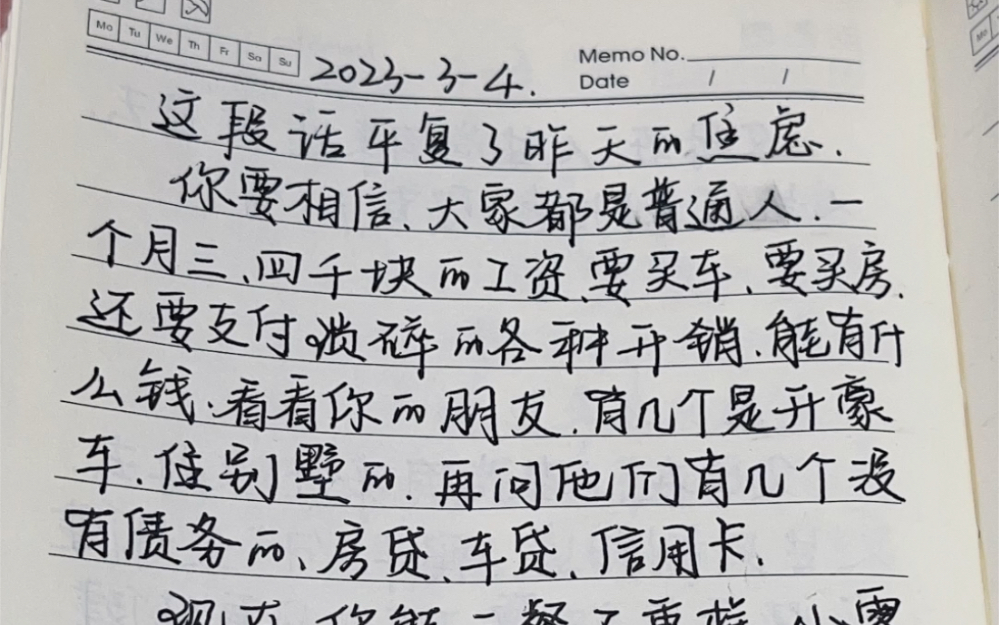 Mo Tu We Th Fr Sa Su
Memo No.
Date / /
2023-3-4.
这段话平复了昨天的焦虑.
你要相信、大家都是普通人.一
个月三、四千块的工资、要买车、要买房、
还要支付琐碎的各种开销、能有什
么钱.看看你的朋友.有几个是开豪
车.住别墅的.再问他们有几个没
有债务的、房贷、车贷、信用卡.
现在你